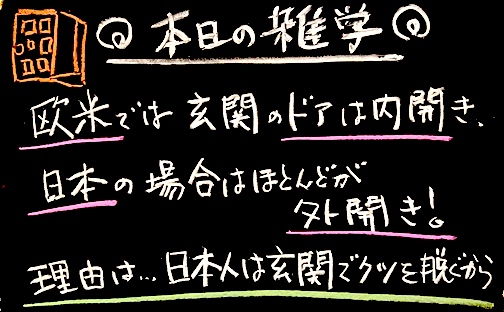 本日の雑学
欧米では玄関のドアは内開き、
日本の場合はほとんどが
外開き!。
理由は…日本人は玄関でクツを脱ぐから